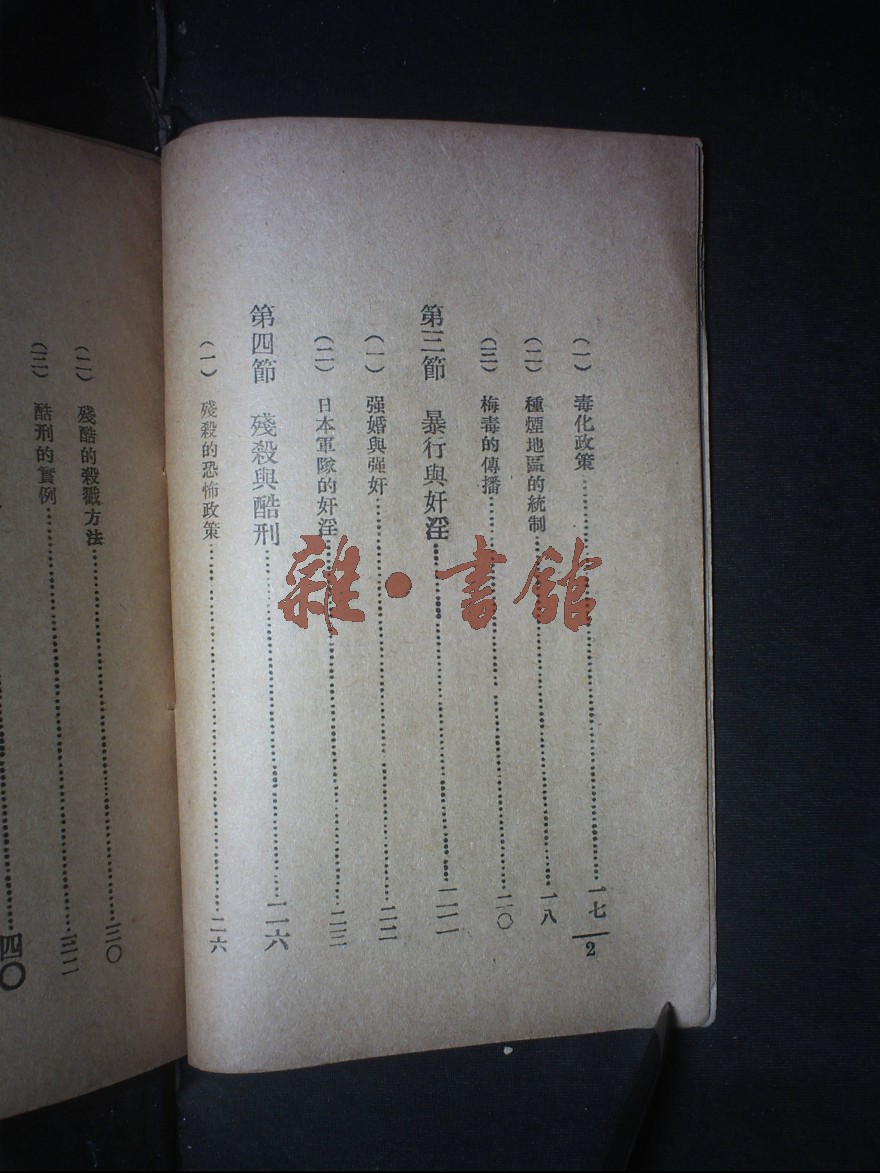 （一）　毒化政策……一七
（二）　種煙地區的統制……一八
（三）　梅毒的傳播……二〇
第三節　暴行與奸淫……二二
（一）　强婚與强奸……二二
（二）　日本軍隊的奸淫……二三
第四節　殘殺與酷刑……二六
（一）　殘殺的恐怖政策……二六
2
（二）　殘酷的殺戳方法……三〇
（三）　酷刑的實例……三二
四〇
雜·書館